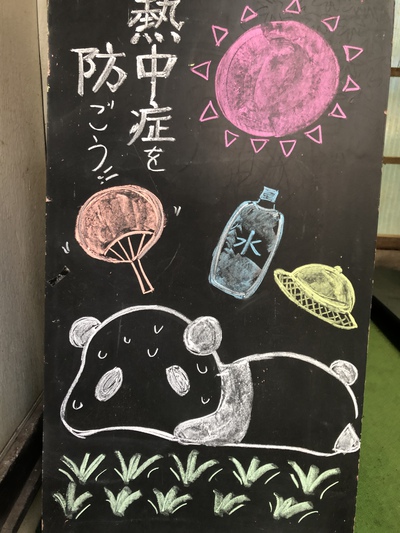 熱中症を
防ごう!!
水